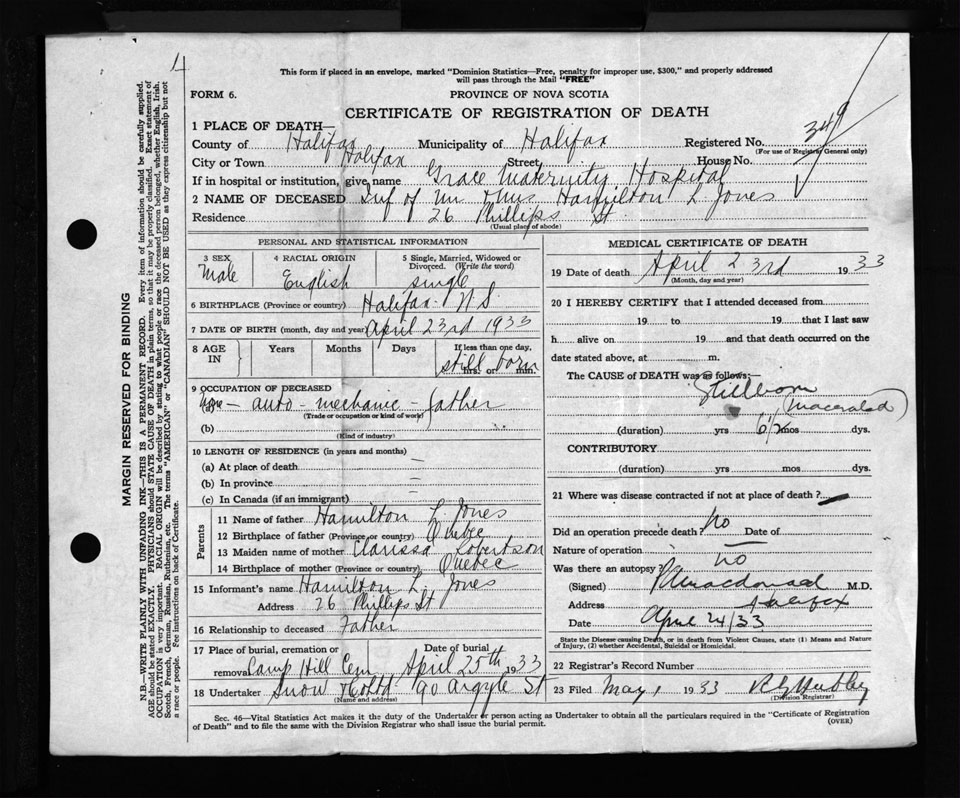 4
This form if placed in an envelope, marked "Dominion Statistics—Free, penalty for improper use, $300," and properly addressed
will pass through the Mail "FREE"
FORM 6.
PROVINCE OF NOVA SCOTIA
CERTIFICATE OF REGISTRATION OF DEATH
1 PLACE OF DEATH—
County of Halifax Municipality of Halifax Registered No. 349
(For use of Registrar General only)
City or Town Halifax Street House No.
If in hospital or institution, give name Grace Maternity Hospital
2 NAME OF DECEASED Inf of Mr & Mrs Hamilton L. Jones
Residence 26 Phillips St.
(Usual place of abode)
PERSONAL AND STATISTICAL INFORMATION
3 SEX 4 RACIAL ORIGIN 5 Single, Married, Widowed or
Divorced. (Write the word)
Male English single
6 BIRTHPLACE (Province or country) Halifax N S.
7 DATE OF BIRTH (month, day and year) April 23rd 1933
8 AGE IN Years Months Days If less than one day,
still born
hrs. or min.
9 OCCUPATION OF DECEASED
(a) auto-mechanic - father
(Trade or occupation or kind of work)
(b)
(Kind of industry)
10 LENGTH OF RESIDENCE (in years and months)
(a) At place of death
(b) In province
(c) In Canada (if an immigrant)
Parents
11 Name of father Hamilton L. Jones
12 Birthplace of father (Province or country) Quebec
13 Maiden name of mother Clarissa Robertson
14 Birthplace of mother (Province or country) Quebec
15 Informant's name Hamilton L. Jones
Address 26 Phillips St.
16 Relationship to deceased Father
17 Place of burial, cremation or Date of burial
removal Camp Hill Cem April 25th 1933
18 Undertaker Snow & Co Ltd 90 Argyle St
(Name and address)
MEDICAL CERTIFICATE OF DEATH
19 Date of death April 23rd 1933
(Month, day and year)
20 I HEREBY CERTIFY that I attended deceased from
19 to 19 that I last saw
h alive on 19 and that death occurred on the
date stated above, at m.
The CAUSE OF DEATH was as follows:
Stillborn
(macerated)
(duration) yrs 6½ mos dys.
CONTRIBUTORY
(duration) yrs mos dys.
21 Where was disease contracted if not at place of death?
Did an operation precede death? No Date of
Nature of operation
Was there an autopsy? No
(Signed) Macdonald M.D.
Address Halifax
Date April 24/33
State the Disease causing Death, or in death from Violent Causes, state (1) Means and Nature
of Injury, (2) whether Accidental, Suicidal or Homicidal.
22 Registrar's Record Number
23 Filed May 1 1933
(Division Registrar)
Sec. 46—Vital Statistics Act makes it the duty of the Undertaker or person acting as Undertaker to obtain all the particulars required in the "Certificate of Registration
of Death" and to file the same with the Division Registrar who shall issue the burial permit.
(OVER)
MARGIN RESERVED FOR BINDING
N.B.—WRITE PLAINLY WITH UNFADING INK—THIS IS A PERMANENT RECORD. Every item of information should be carefully supplied.
AGE should be stated EXACTLY. PHYSICIANS should STATE CAUSE OF DEATH in plain terms, so that it may be properly classified. Exact statement of
OCCUPATION is very important. RACIAL ORIGIN will be described by stating to what people or race the deceased person belonged, whether English, Irish,
Scotch, French, German, Russian, Ruthenian, etc. The terms "AMERICAN" or "CANADIAN" SHOULD NOT BE USED as they express citizenship but not
a race or people. See instructions on back of Certificate.